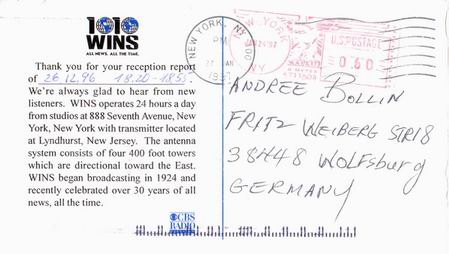 1010
WINS
ALL NEWS. ALL THE TIME.
Thank you for your reception report
of 26.12.96 18.20-18.55.
We're always glad to hear from new
listeners. WINS operates 24 hours a day
from studios at 888 Seventh Avenue, New
York, New York with transmitter located
at Lyndhurst, New Jersey. The antenna
system consists of four 400 foot towers
which are directional toward the East.
WINS began broadcasting in 1924 and
recently celebrated over 30 years of all
news, all the time.
CBS
RADIO
NEW YORK, NY
PM
U.S. POSTAGE
0.60
ANDREE BOLLIN
FRITZ WEIBERG STR 18
38448 WOLFSBURG
GERMANY